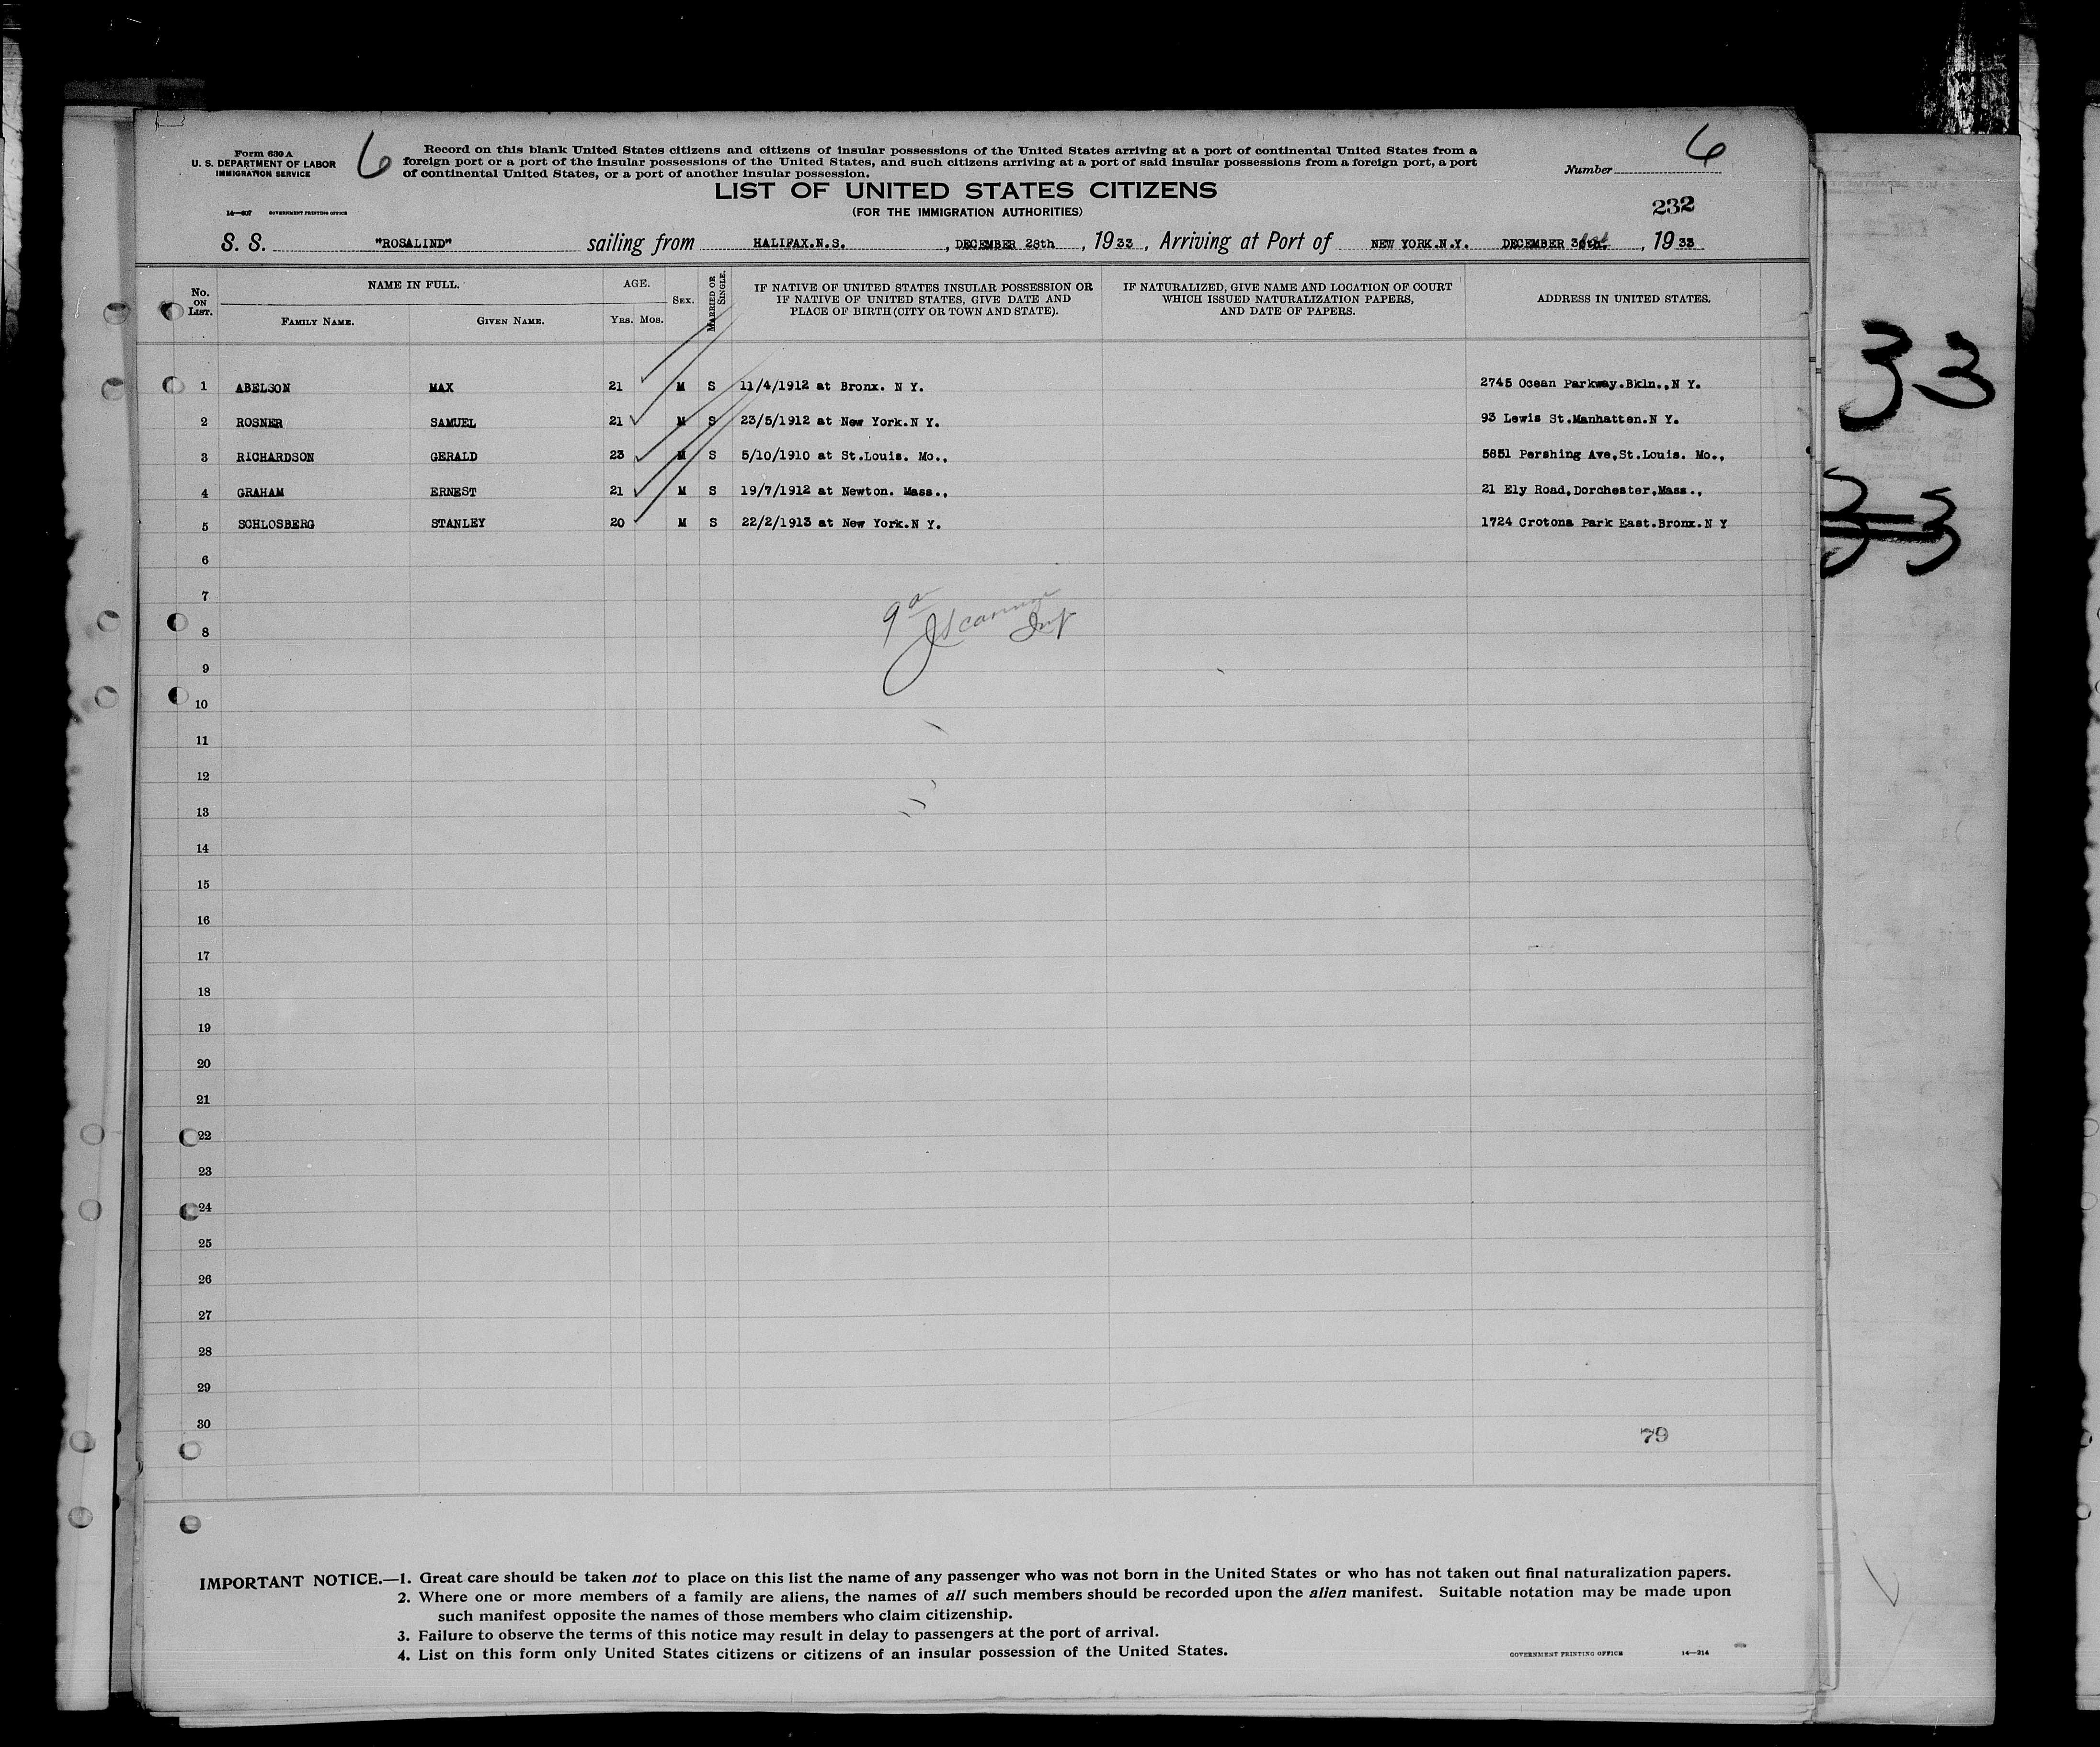 Form 630 A
U. S. DEPARTMENT OF LABOR
IMMIGRATION SERVICE
14—607 GOVERNMENT PRINTING OFFICE
6
Record on this blank United States citizens and citizens of insular possessions of the United States arriving at a port of continental United States from a
foreign port or a port of the insular possessions of the United States, and such citizens arriving at a port of said insular possessions from a foreign port, a port
of continental United States, or a port of another insular possession.
Number 6
LIST OF UNITED STATES CITIZENS
(FOR THE IMMIGRATION AUTHORITIES)
232
S. S. "ROSALIND" sailing from HALIFAX.N.S. , DECEMBER 28th , 1933 , Arriving at Port of NEW YORK.N.Y. DECEMBER 31st , 1933
No. ON LIST.
NAME IN FULL.
FAMILY NAME. GIVEN NAME.
AGE.
YRS. MOS.
SEX.
MARRIED OR SINGLE.
IF NATIVE OF UNITED STATES INSULAR POSSESSION OR
IF NATIVE OF UNITED STATES, GIVE DATE AND
PLACE OF BIRTH (CITY OR TOWN AND STATE).
IF NATURALIZED, GIVE NAME AND LOCATION OF COURT
WHICH ISSUED NATURALIZATION PAPERS,
AND DATE OF PAPERS.
ADDRESS IN UNITED STATES.
1 ABELSON MAX 21 M S 11/4/1912 at Bronx. N Y. 2745 Ocean Parkway.Bkln.,N Y.
2 ROSNER SAMUEL 21 M S 23/5/1912 at New York.N Y. 93 Lewis St.Manhatten.N Y.
3 RICHARDSON GERALD 23 M S 5/10/1910 at St.Louis. Mo., 5851 Pershing Ave,St.Louis. Mo.,
4 GRAHAM ERNEST 21 M S 19/7/1912 at Newton. Mass., 21 Ely Road,Dorchester,Mass.,
5 SCHLOSBERG STANLEY 20 M S 22/2/1913 at New York.N Y. 1724 Crotona Park East.Bronx.N Y
6
7
8
9
10
11
12
13
14
15
16
17
18
19
20
21
22
23
24
25
26
27
28
29
30
79
33
33
IMPORTANT NOTICE.—1. Great care should be taken not to place on this list the name of any passenger who was not born in the United States or who has not taken out final naturalization papers.
2. Where one or more members of a family are aliens, the names of all such members should be recorded upon the alien manifest. Suitable notation may be made upon
such manifest opposite the names of those members who claim citizenship.
3. Failure to observe the terms of this notice may result in delay to passengers at the port of arrival.
4. List on this form only United States citizens or citizens of an insular possession of the United States.
GOVERNMENT PRINTING OFFICE 14—214